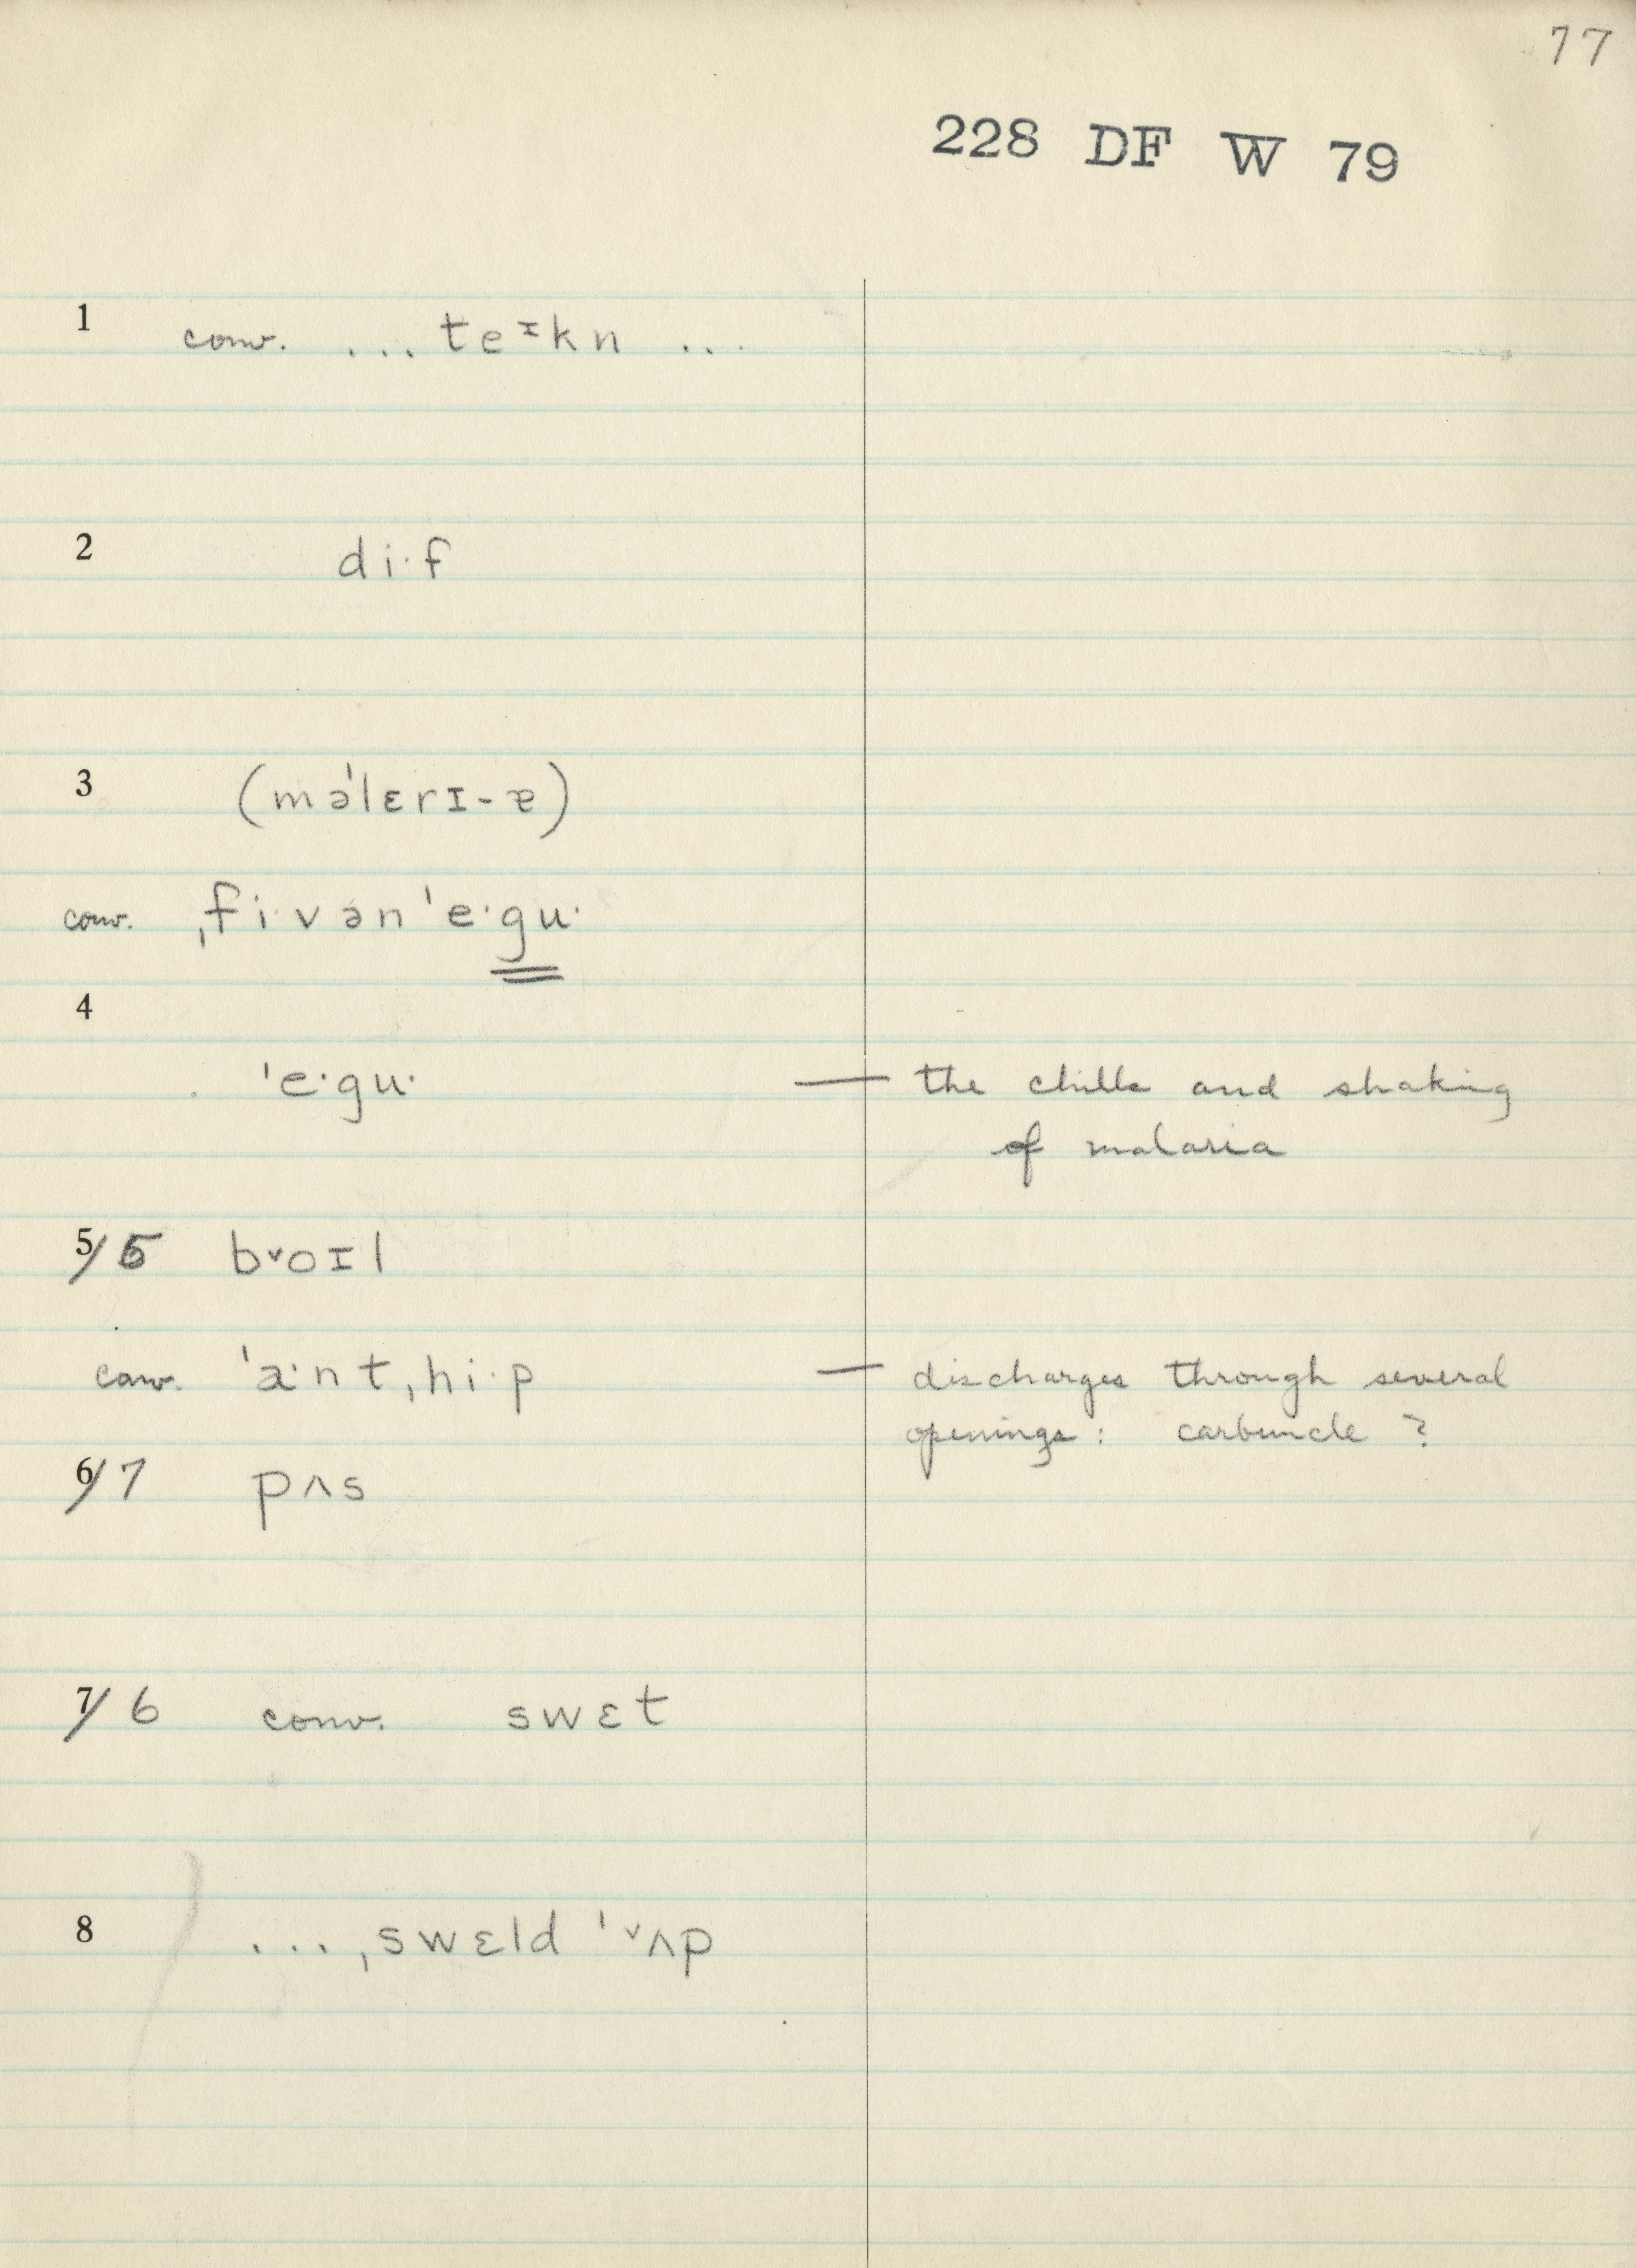 77
228 DF W 79
1 conv. ... teᶦkn ...
2 di·f
3 (mə'lɛrɪ-ɐ)
conv. ˌfi·vən'e·gu·
4
'e·gu· — the chills and shaking
of malaria
5/6 bᵛoɪl
conv. 'a·ntˌhi·p — discharges through several
openings: carbuncle ?
6/7 pʌs
7/6 conv. swɛt
8 ... ˌswɛld 'ᵛʌp